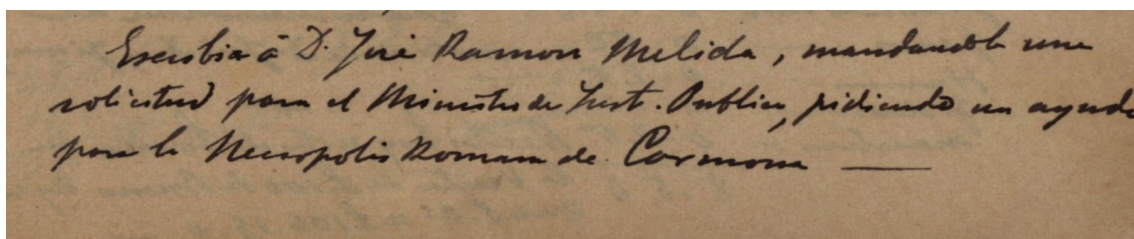 Escribir á D. José Ramon Melida, mandandole una
solicitud para el Ministro de Inst. Publica, pidiendo un ayuda
para la Necropolis Romana de Carmona —